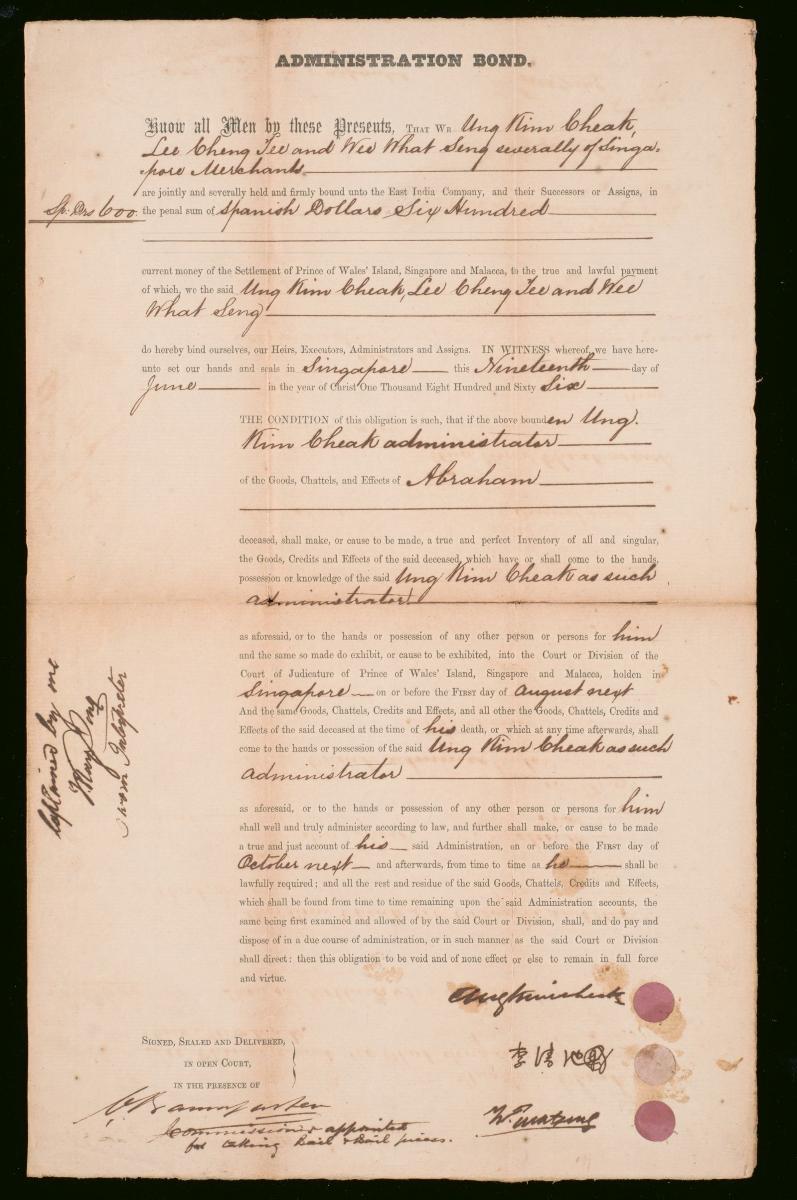 ADMINISTRATION BOND.
Know all Men by these Presents, THAT WE Ung Kim Cheak,
Lee Cheng Tee and Wee What Seng severally of Singa-
pore Merchants
are jointly and severally held and firmly bound unto the East India Company, and their Successors or Assigns, in
Sp. Drs 600. the penal sum of Spanish Dollars Six Hundred
current money of the Settlement of Prince of Wales' Island, Singapore and Malacca, to the true and lawful payment
of which, we the said Ung Kim Cheak, Lee Cheng Tee and Wee
What Seng
do hereby bind ourselves, our Heirs, Executors, Administrators and Assigns. IN WITNESS whereof we have here-
unto set our hands and seals in Singapore this Nineteenth day of
June in the year of Christ One Thousand Eight Hundred and Sixty Six
THE CONDITION of this obligation is such, that if the above bounden Ung
Kim Cheak administrator
of the Goods, Chattels, and Effects of Abraham
deceased, shall make, or cause to be made, a true and perfect Inventory of all and singular,
the Goods, Credits and Effects of the said deceased, which have or shall come to the hands,
possession or knowledge of the said Ung Kim Cheak as such
administrator
as aforesaid, or to the hands or possession of any other person or persons for him
and the same so made do exhibit, or cause to be exhibited, into the Court or Division of the
Court of Judicature of Prince of Wales' Island, Singapore and Malacca, holden in
Singapore on or before the FIRST day of August next
And the same Goods, Chattels, Credits and Effects, and all other the Goods, Chattels, Credits and
Effects of the said deceased at the time of his death, or which at any time afterwards, shall
come to the hands or possession of the said Ung Kim Cheak as such
administrator
as aforesaid, or to the hands or possession of any other person or persons for him
shall well and truly administer according to law, and further shall make, or cause to be made
a true and just account of his said Administration, on or before the FIRST day of
October next and afterwards, from time to time as he shall be
lawfully required; and all the rest and residue of the said Goods, Chattels, Credits and Effects,
which shall be found from time to time remaining upon the said Administration accounts, the
same being first examined and allowed of by the said Court or Division, shall, and do pay and
dispose of in a due course of administration, or in such manner as the said Court or Division
shall direct: then this obligation to be void and of none effect or else to remain in full force
and virtue.
Explained by me
Sworn Interpreter
SIGNED, SEALED AND DELIVERED,
IN OPEN COURT,
IN THE PRESENCE OF
李清
Commissioner appointed
for taking Bail & Bail pieces.